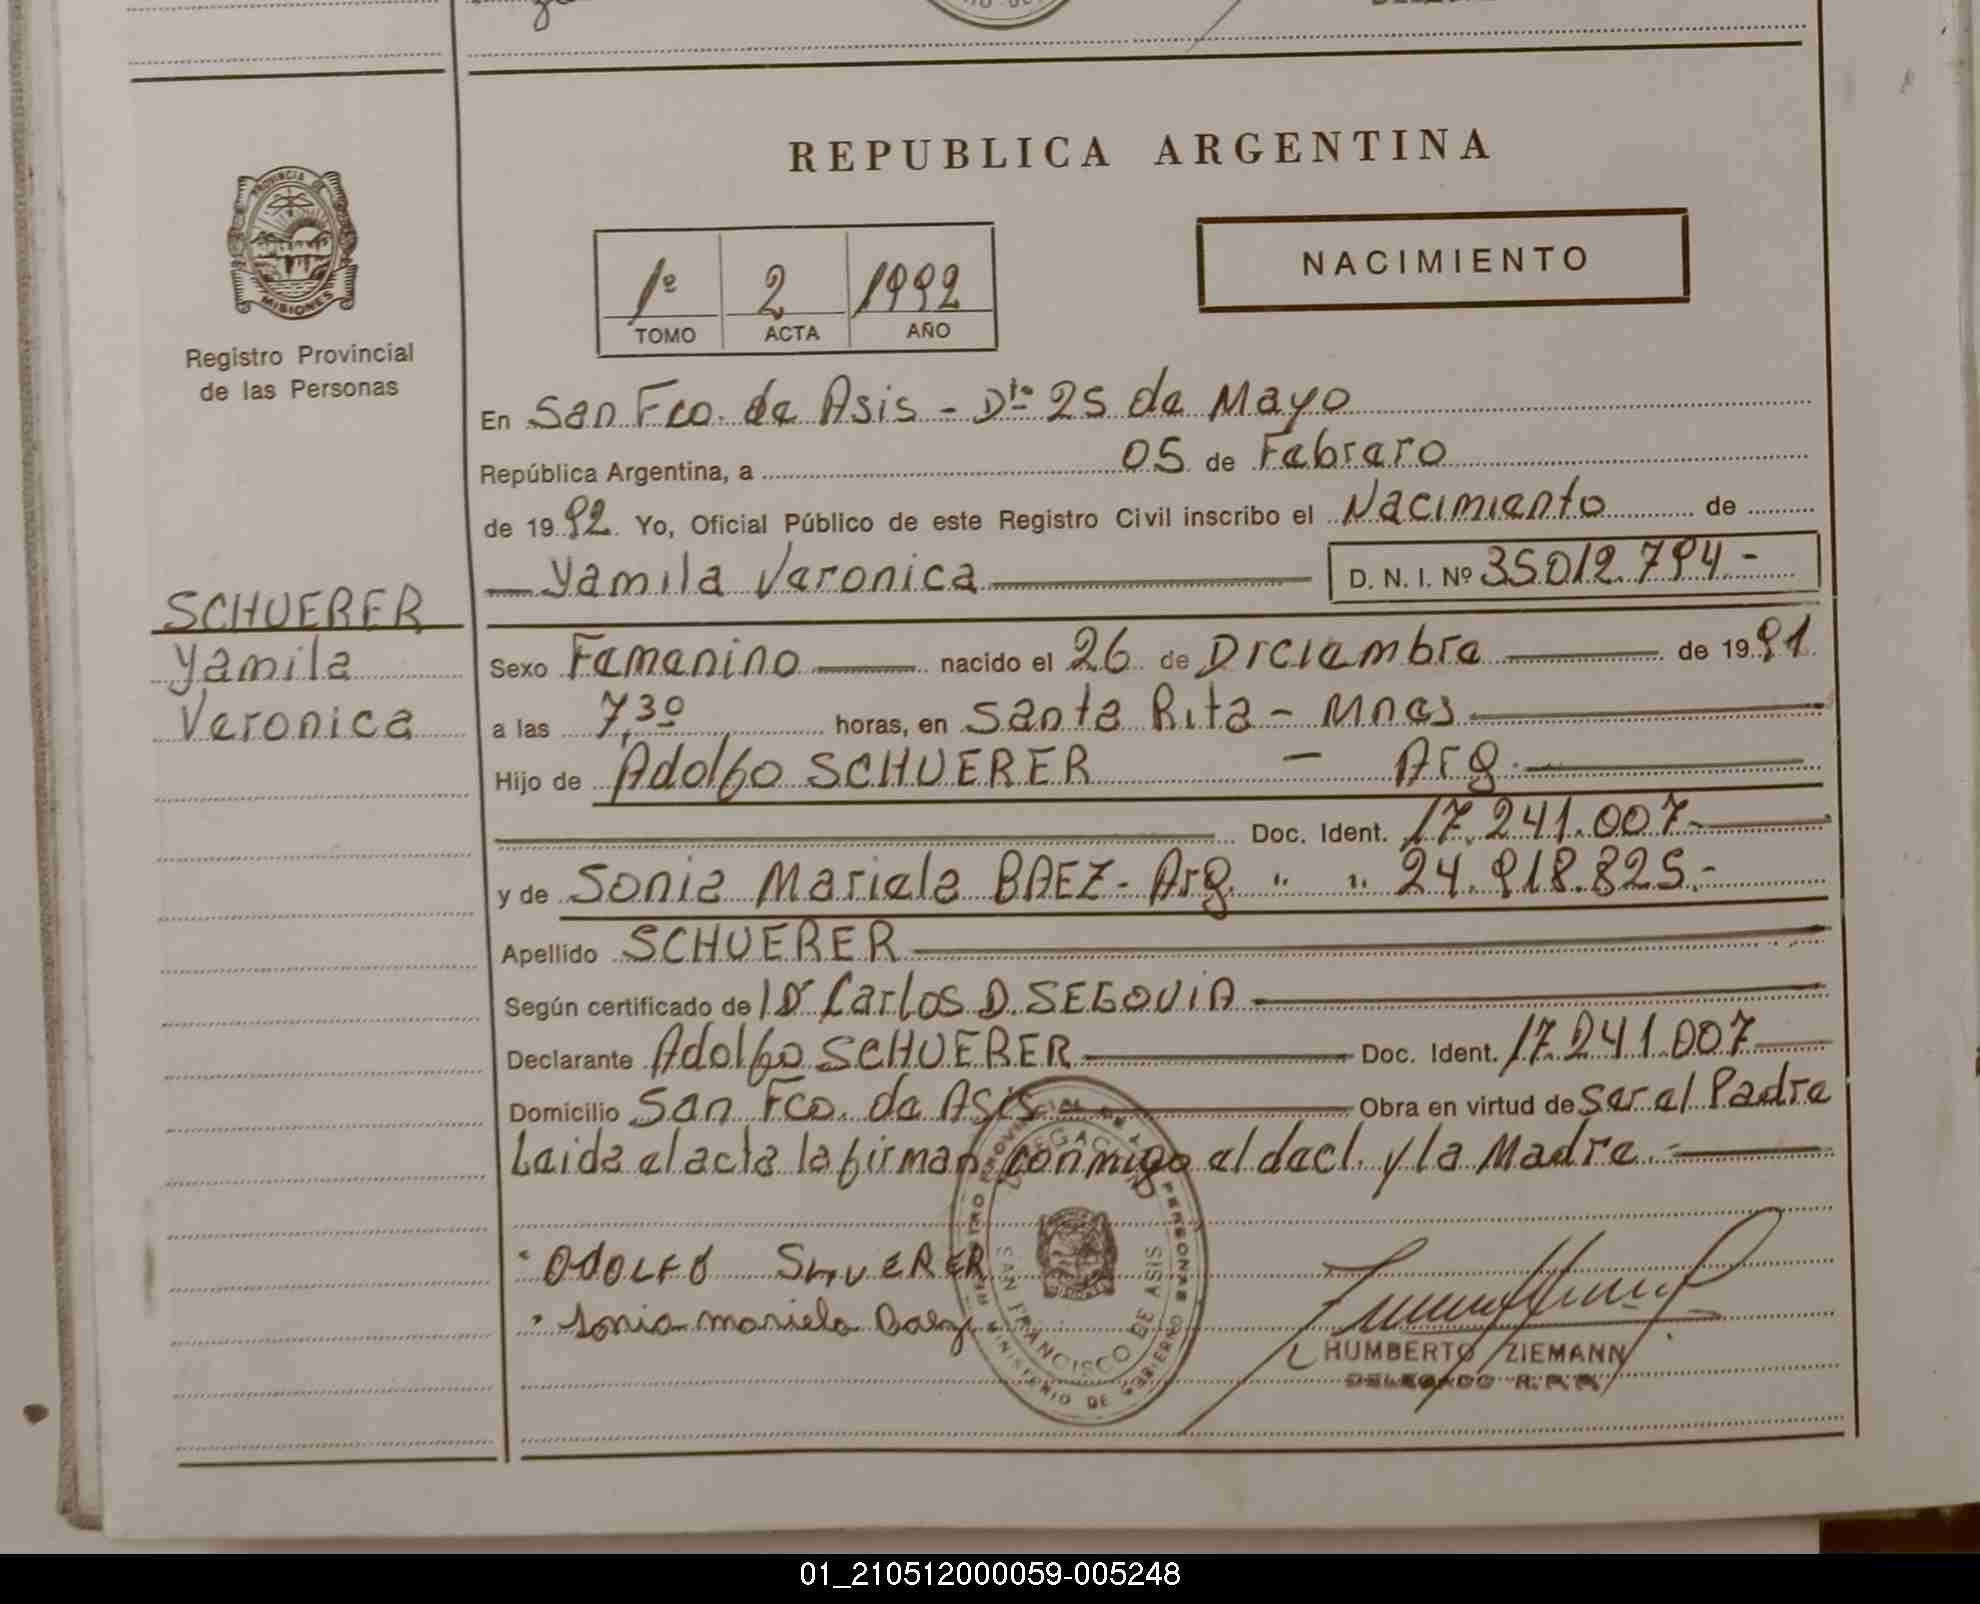 REPUBLICA ARGENTINA
PROVINCIA DE
MISIONES
Registro Provincial
de las Personas
1º 2 1992
TOMO ACTA AÑO
NACIMIENTO
En San Fco. de Asis - Dto 25 de Mayo
República Argentina, a 05 de Febrero
de 1992. Yo, Oficial Público de este Registro Civil inscribo el Nacimiento de
Yamila Veronica D. N. I. Nº 35.012.794-
SCHUERER
Yamila
Veronica
Sexo Femenino nacido el 26 de Diciembre de 1991
a las 7,30 horas, en Santa Rita - Mnes
Hijo de Adolfo SCHUERER - Arg.
Doc. Ident. 17.241.007-
y de Sonia Mariela BAEZ - Arg. " " 24.918.825.-
Apellido SCHUERER
Según certificado de Dr Carlos D. SEGOVIA
Declarante Adolfo SCHUERER Doc. Ident. 17.241.007
Domicilio San Fco. de Asis Obra en virtud de ser el Padre
Leida el acta la firman conmigo el decl. y la Madre.
REGISTRO PROVINCIAL DE LAS PERSONAS
DELEGACION
SAN FRANCISCO DE ASIS
MINISTERIO DE GOBIERNO
ODOLFO SHUERER
Sonia mariela Baez
HUMBERTO ZIEMANN
DELEGADO R.P.P.
01_210512000059-005248